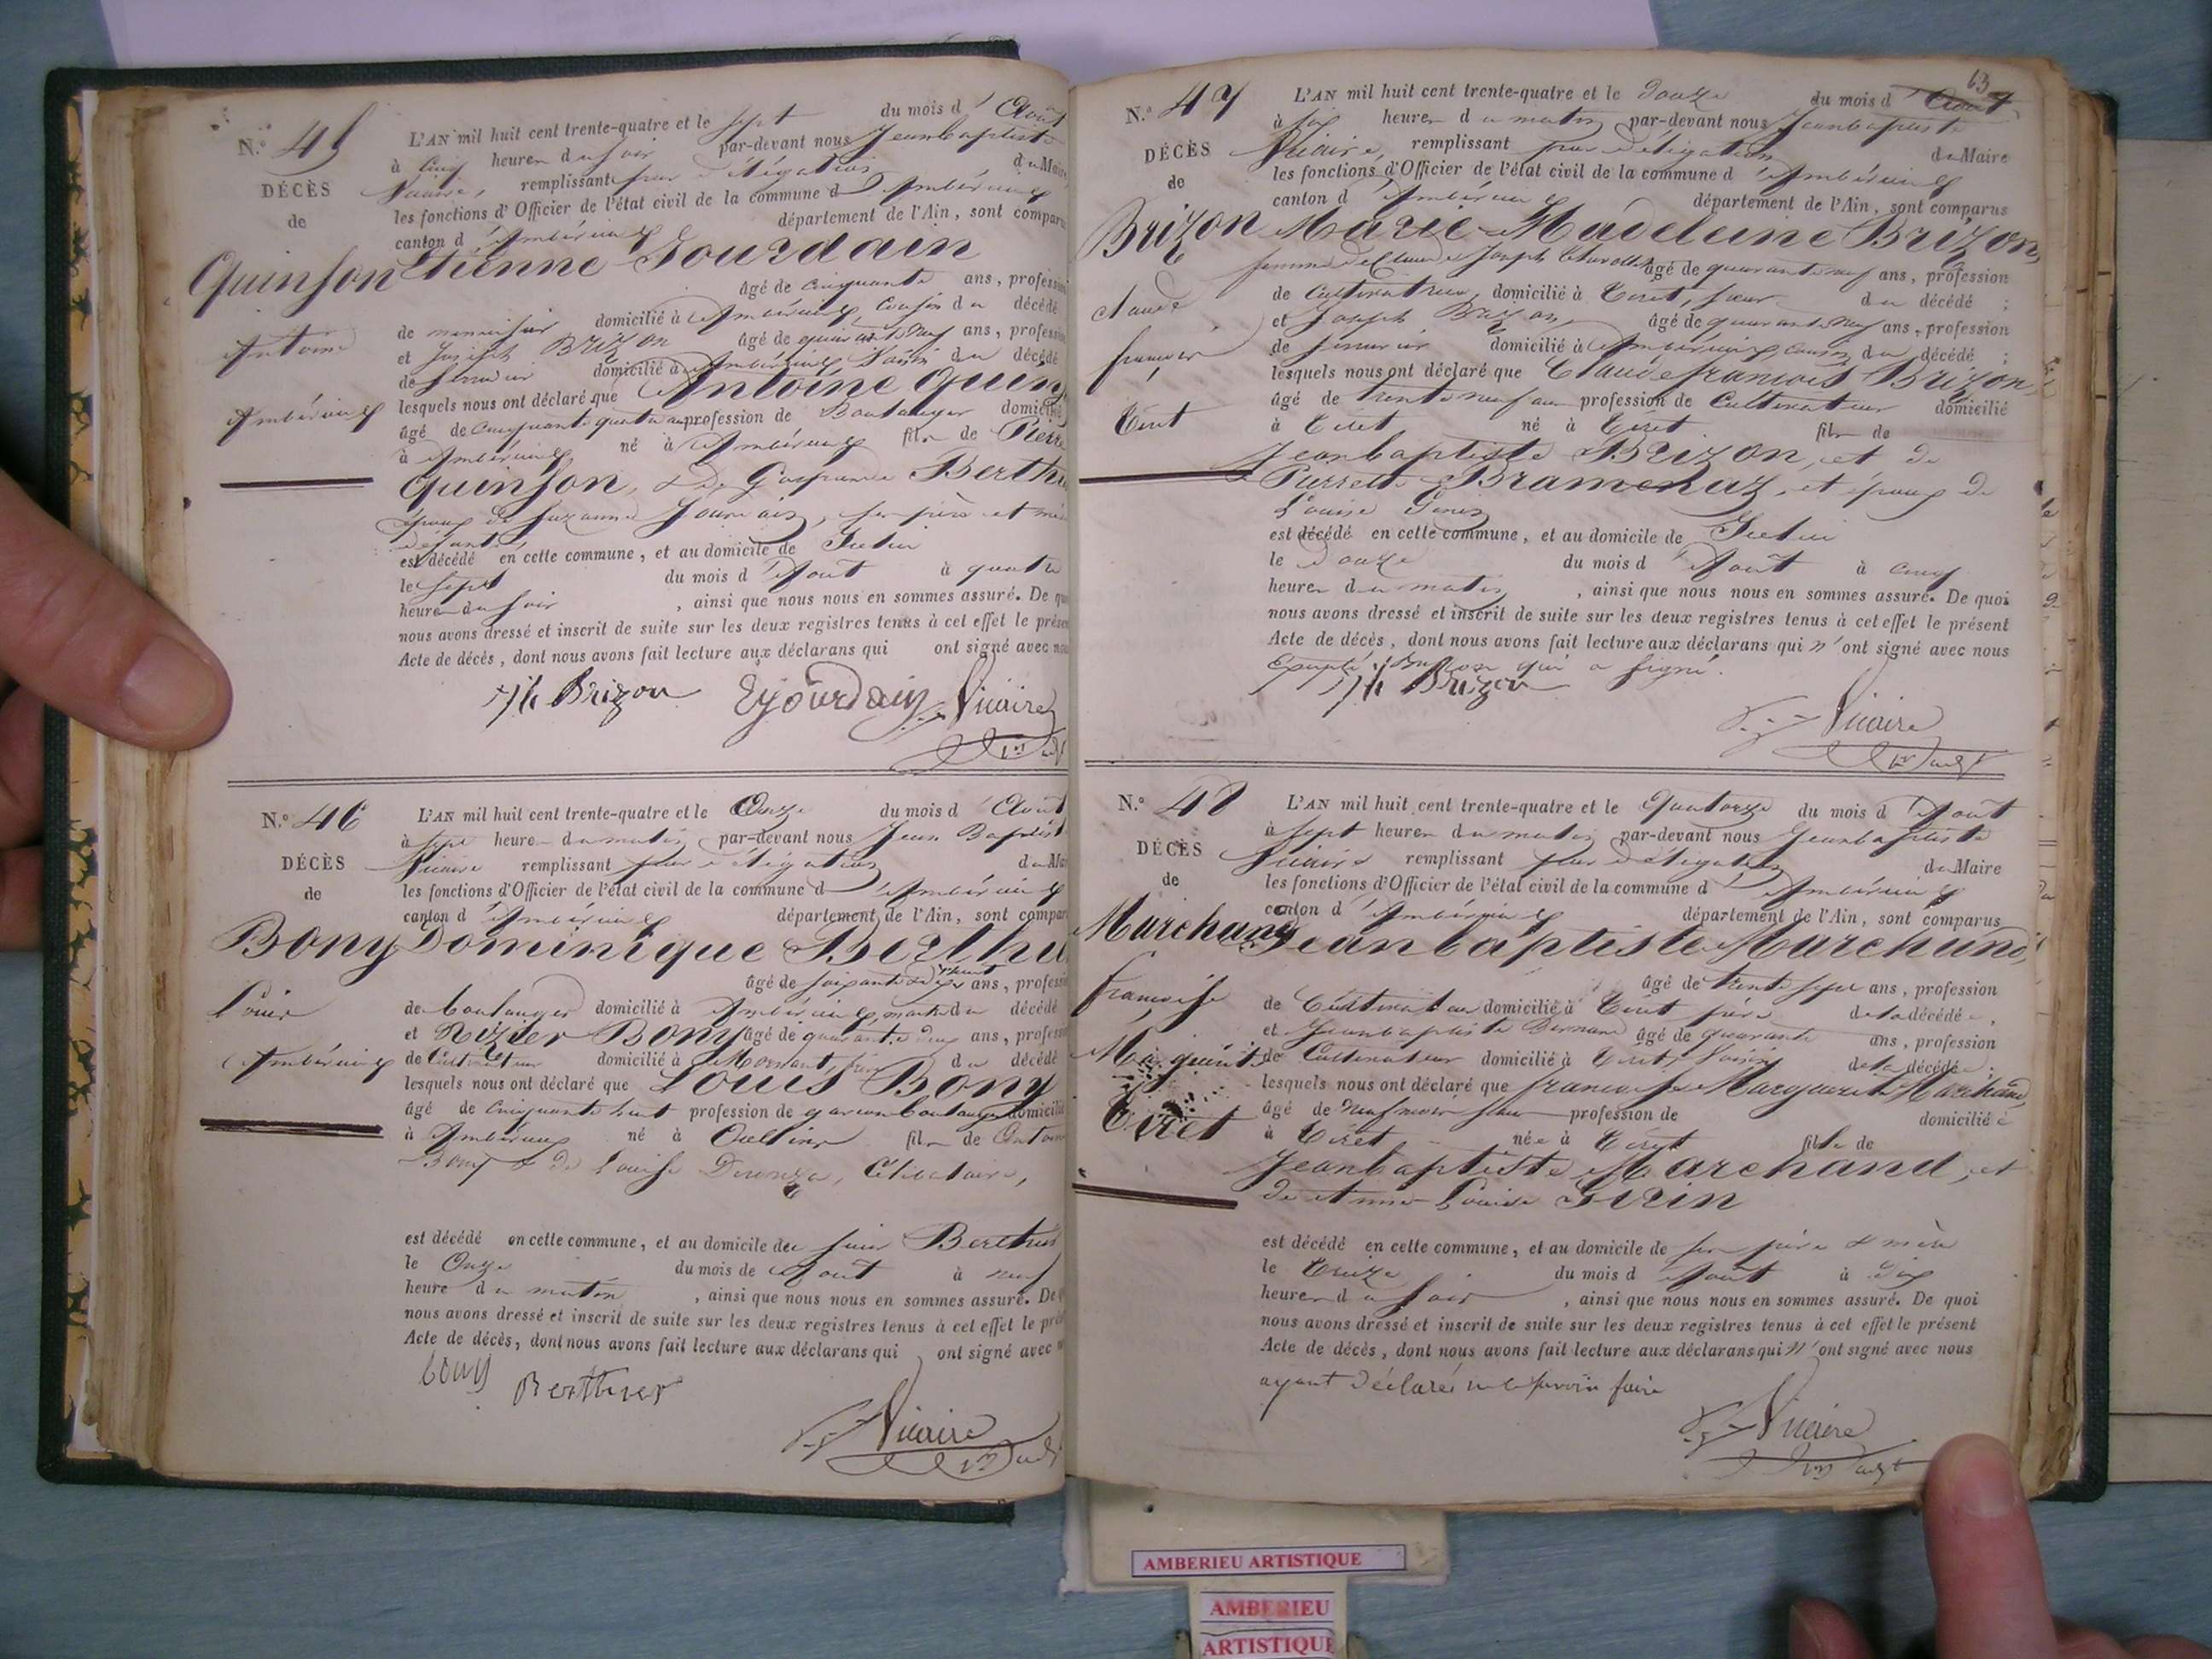 N.o 45
L'AN mil huit cent trente-quatre et le sept du mois d'Août
à cinq heures du soir par-devant nous Jeanbaptiste
DÉCÈS
Vicaire, remplissant par délégation du Maire
de
les fonctions d'Officier de l'état civil de la commune d'Ambérieux
canton d'Ambérieux département de l'Ain, sont comparus
Quinson Etienne Jourdain
âgé de cinquante ans, profession
Antoine
de menuisier domicilié à Ambérieux, cousin du décédé
et Joseph Brizon âgé de quarante neuf ans, profession
de domicilié à Ambérieux, voisin du décédé
Ambérieux
lesquels nous ont déclaré que Antoine Quin
âgé de cinquante quatre ans profession de Boulanger domicilié
à Ambérieux né à Ambérieux fils de Pierre
Quinson, & de Berth
époux de Suzanne Jourdain, ses père et mè
défunts,
est décédé en cette commune, et au domicile de
le sept du mois d'Août à quatre
heures du soir, ainsi que nous nous en sommes assuré. De qu
nous avons dressé et inscrit de suite sur les deux registres tenus à cet effet le prése
Acte de décès, dont nous avons fait lecture aux déclarans qui ont signé avec nou
Jh Brizon Ejourdain Vicaire
N.o 46
L'AN mil huit cent trente-quatre et le Onze du mois d'Août
à heure du matin par-devant nous Jean Baptist
DÉCÈS
Vicaire remplissant par délégation du Mai
de
les fonctions d'Officier de l'état civil de la commune d'Ambérieux
canton d'Ambérieux département de l'Ain, sont compar
Bony Dominique Berthe
âgé de soixante ans, profess
Louis
de boulanger domicilié à Ambérieux, du décédé
et Nizier Bony âgé de quarante deux ans, profess
Ambérieux
de Cultivateur domicilié à Mornant, frère du décédé
lesquels nous ont déclaré que Louis Bony
âgé de cinquante huit profession de garçon boulanger domicilié
à Ambérieux né à Oullins fils de Antoin
Bony & de Louise Célibataire,
est décédé en cette commune, et au domicile du sieur Berthe
le Onze du mois de Août à neuf
heure du matin, ainsi que nous nous en sommes assuré. De
nous avons dressé et inscrit de suite sur les deux registres tenus à cet effet le pré
Acte de décès, dont nous avons fait lecture aux déclarans qui ont signé avec
bony Berthier
Vicaire
63
N.o 47
L'AN mil huit cent trente-quatre et le Douze du mois d'Août
à six heures du matin par-devant nous Jeanbaptiste
DÉCÈS
Vicaire, remplissant par délégation du Maire
de
les fonctions d'Officier de l'état civil de la commune d'Ambérieux
canton d'Ambérieux département de l'Ain, sont comparus
Brizon Marie Madeleine Brizon,
femme de Claude Joseph âgé de quarante neuf ans, profession
Claude
de Cultivatrice, domicilié à Tiret, sœur du décédé ;
et Joseph Brizon, âgé de quarante neuf ans, profession
françois
de domicilié à Ambérieux, cousin du décédé ;
lesquels nous ont déclaré que Claude françois Brizon
âgé de trente neuf ans profession de Cultivateur domicilié
Tiret
à Tiret né à Tiret fils de
Jeanbaptiste Brizon, et de
Pierrette Bramenaz, et époux de
Louise
est décédé en cette commune, et au domicile de
le Douze du mois d'Août à cinq
heures du matin, ainsi que nous nous en sommes assuré. De quoi
nous avons dressé et inscrit de suite sur les deux registres tenus à cet effet le présent
Acte de décès, dont nous avons fait lecture aux déclarans qui n'ont signé avec nous
Excepté Jh Brizon qui a signé.
Jh Brizon
Vicaire
N.o 48
L'AN mil huit cent trente-quatre et le Quatorze du mois d'Août
à sept heures du matin par-devant nous Jeanbaptiste
DÉCÈS
Vicaire remplissant par délégation du Maire
de
les fonctions d'Officier de l'état civil de la commune d'Ambérieux
canton d'Ambérieux département de l'Ain, sont comparus
Marchand Jeanbaptiste Marchand,
âgé de trente sept ans, profession
françoise
de Cultivateur domicilié à Tiret père de la décédée,
et Jeanbaptiste âgé de quarante ans, profession
Marguerite
de Cultivateur domicilié à Tiret, voisin de la décédée ;
lesquels nous ont déclaré que françoise Marguerite Marchand,
âgé de neuf mois profession de domicilié e
Tiret
à Tiret née à Tiret fille de
Jeanbaptiste Marchand, et
de Anne Louise
est décédé en cette commune, et au domicile de ses père & mère
le treize du mois d'Août à dix
heures du soir, ainsi que nous nous en sommes assuré. De quoi
nous avons dressé et inscrit de suite sur les deux registres tenus à cet effet le présent
Acte de décès, dont nous avons fait lecture aux déclarans qui n'ont signé avec nous
ayant déclaré ne le savoir faire
Vicaire
AMBERIEU ARTISTIQUE
AMBERIEU
ARTISTIQUE